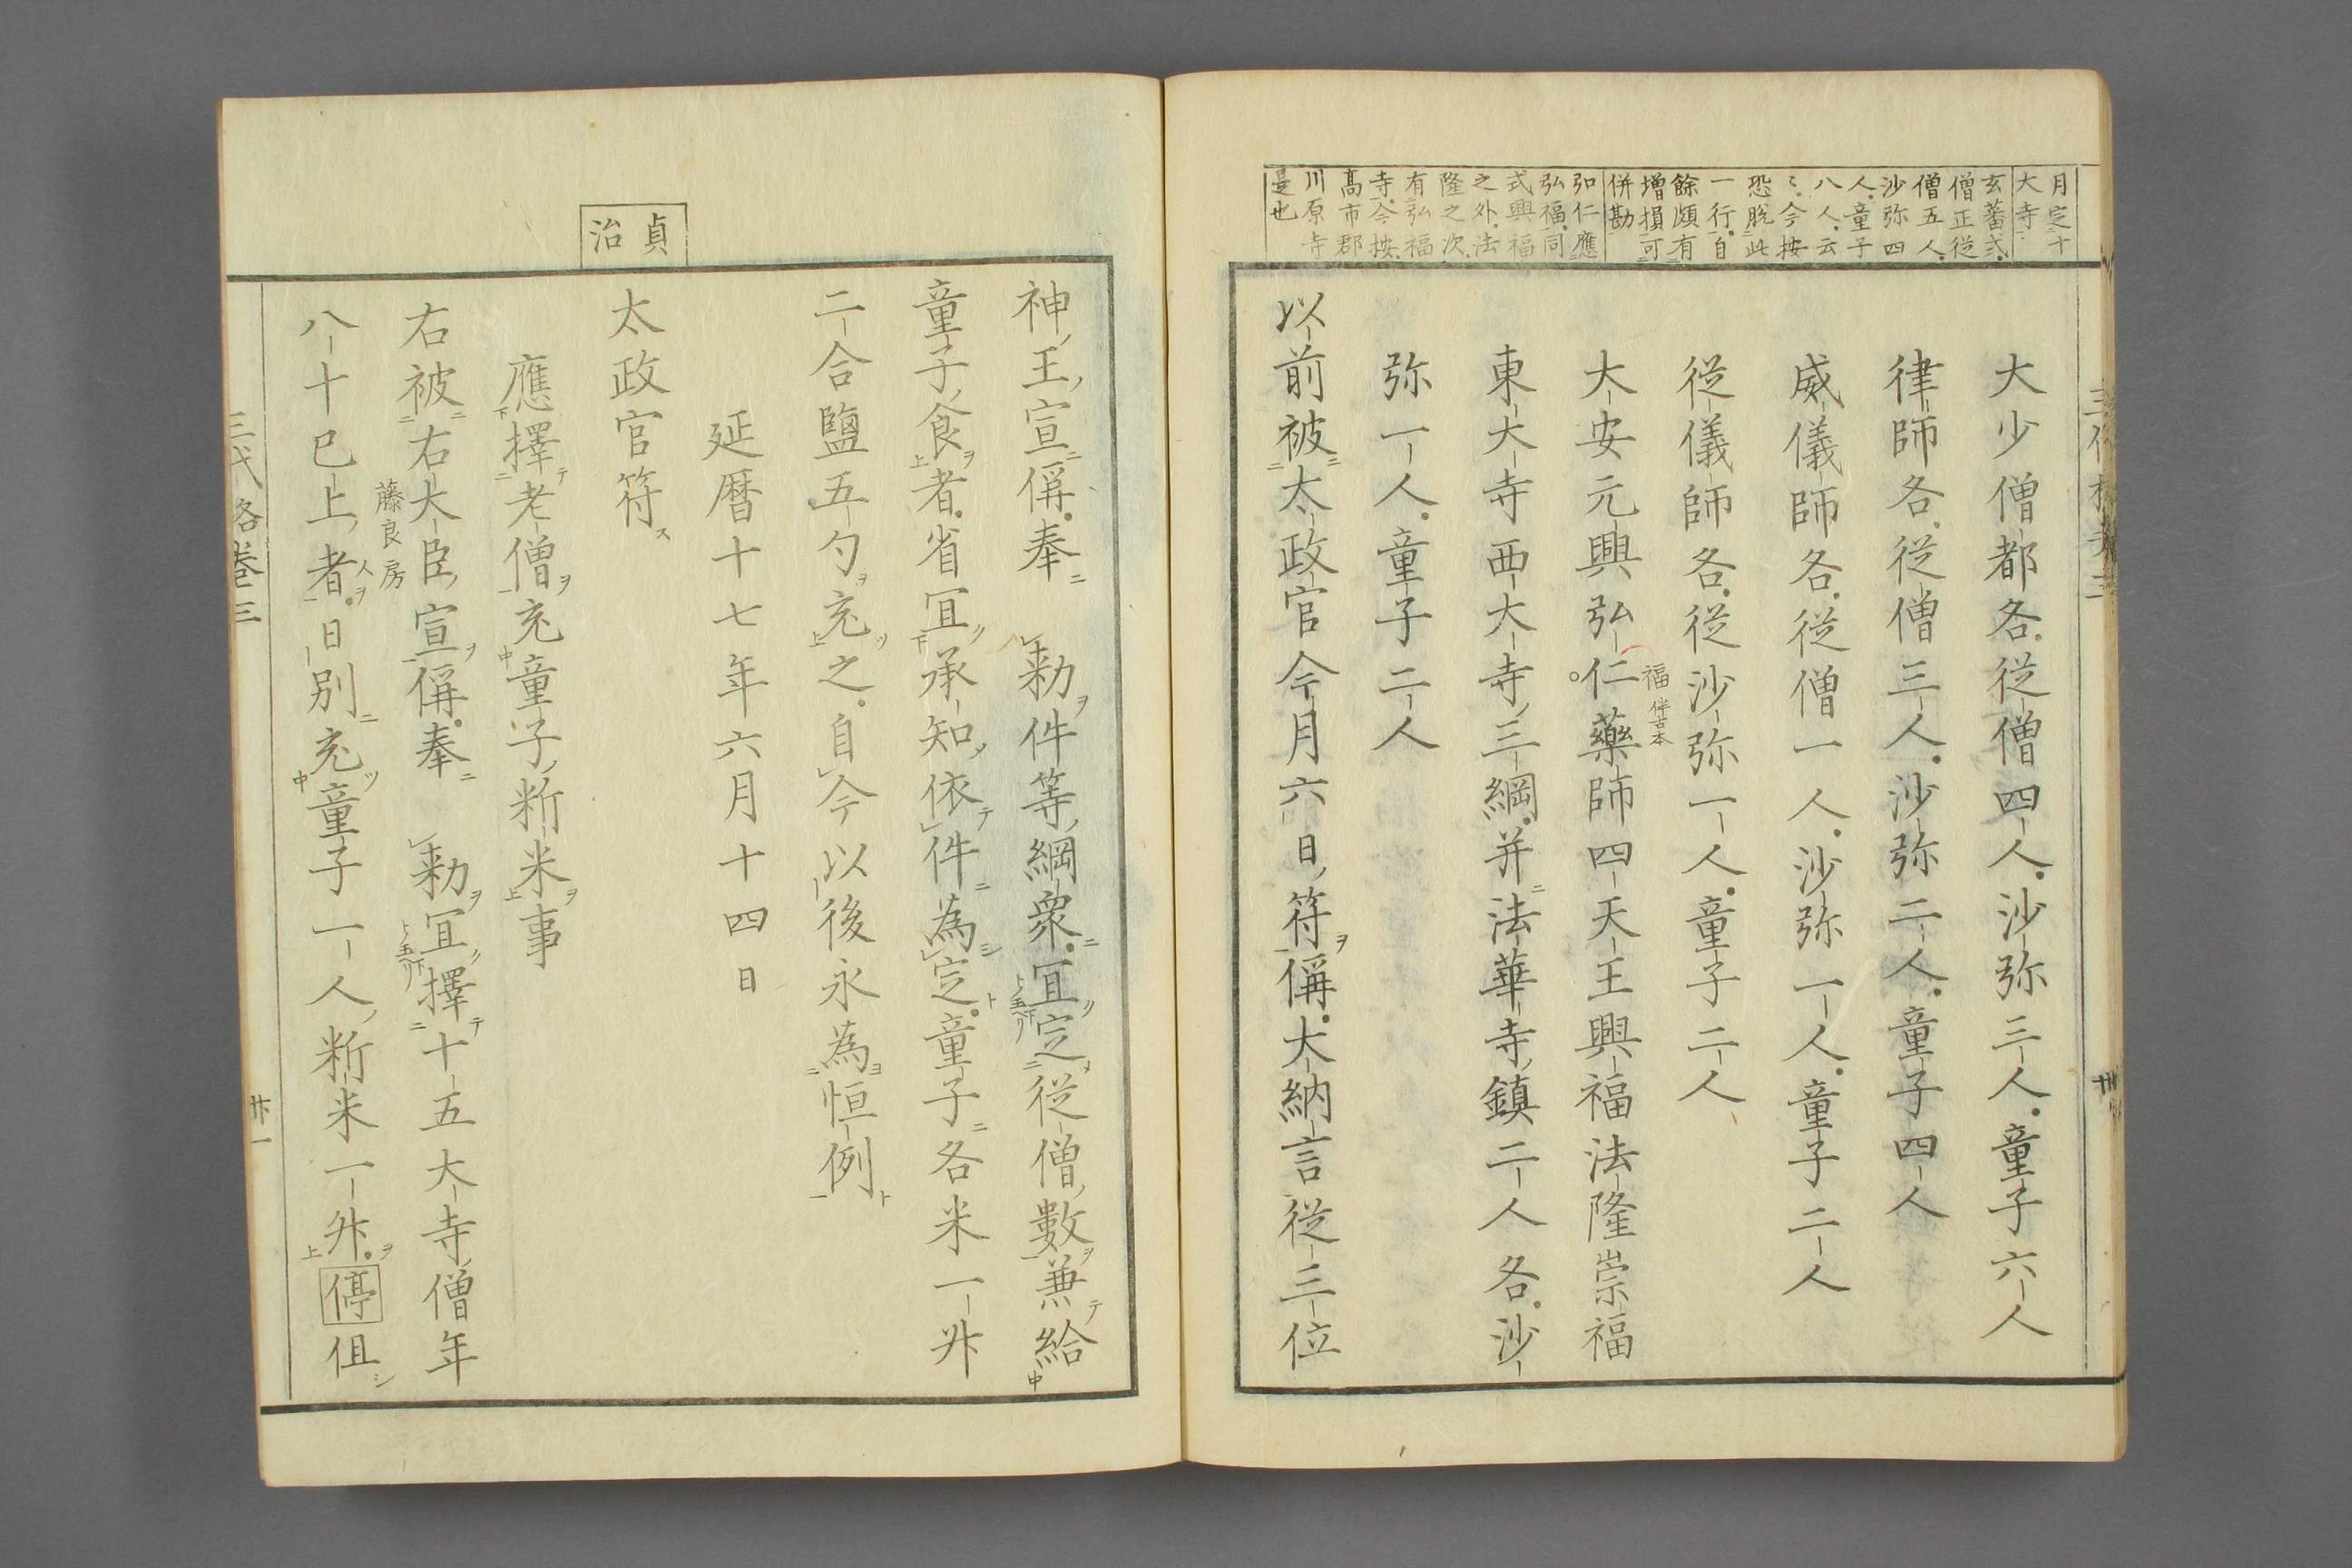 月定十
大寺
玄蕃式
僧正従
僧五人
沙弥四
人童子
八人云
々今按
恐脱此
一行自
餘頗有
増損可
併勘
弘仁應
弘福同
式興福
之外法
隆之次
有弘福
寺今按
髙市郡
川原寺
是也
大少僧都各従僧四人沙弥三人童子六人
律師各従僧三人沙弥二人童子四人
威儀師各従僧一人沙弥一人童子二人
従儀師各従沙弥一人童子二人
福 伴古本
大安元興弘仁藥師四天王興福法隆崇福
東大寺西大寺三綱并法華寺鎮二人各沙
弥一人童子二人
以前被太政官今月六日符偁大納言従三位
神王宣偁奉　勅件等綱衆宜定従僧數兼給
童子食者省冝承知依件為定童子各米一升
二合鹽五勺充之自今以後永為恒例
延暦十七年六月十四日
貞
治
太政官符
應擇老僧充童子新米事
右被右大臣宣偁奉　勅冝擇十五大寺僧年
藤良房
八十已上者日別充童子一人新米一升停但
三代格卷三
廿一